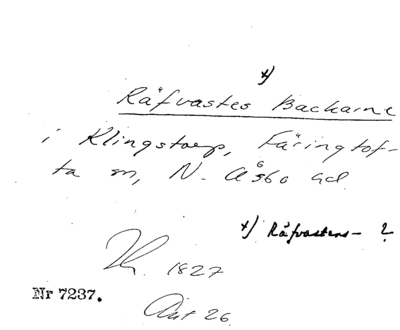 x)
Råfvastes Backarne
i Klingstorp, Färingtof-
ta sn, N. Åsbo hd.
x) Råfvastens- ?
1827
Nr 7237.
Akt 26.